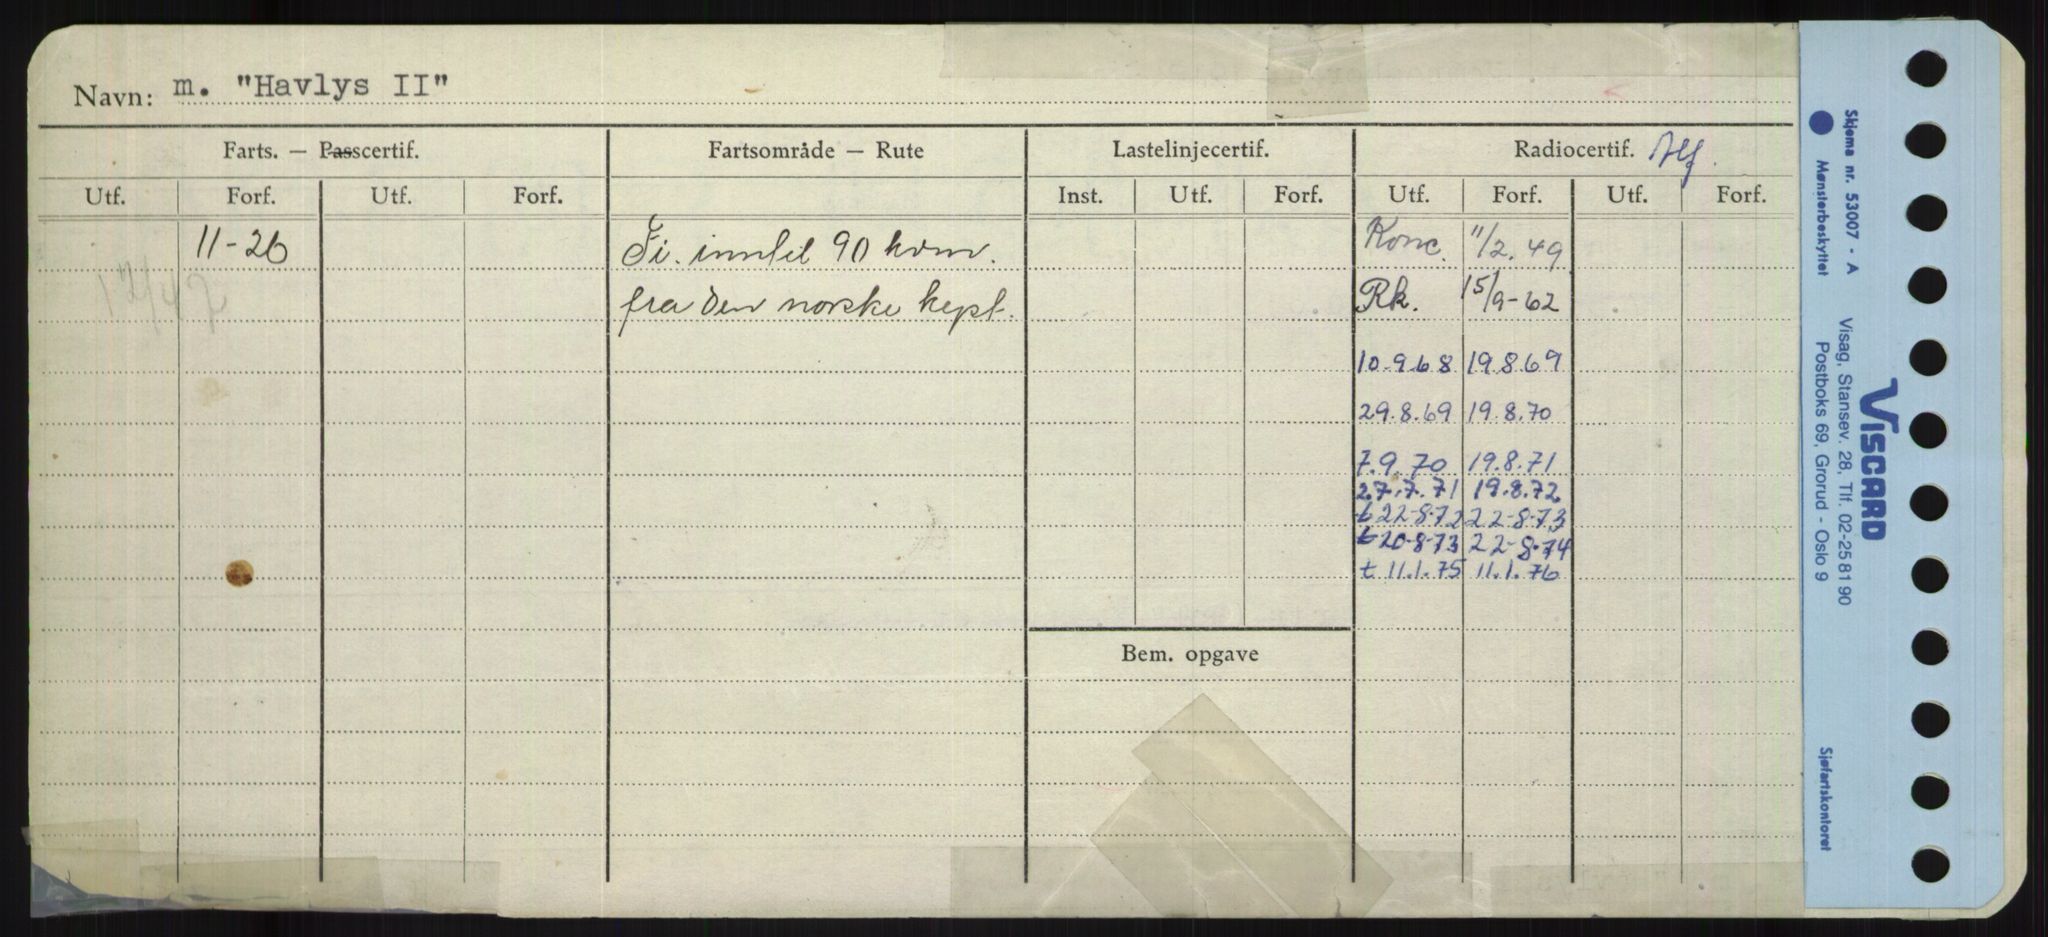 Navn: m. "Havlys II"
Farts. — Passcertif. Fartsområde — Rute Lastelinjecertif. Radiocertif.
Utf. Forf. Utf. Forf. Inst. Utf. Forf. Utf. Forf. Utf. Forf.
11-26 Fi. inntil 90 kvm. Konc. 11/2.49
fra den norske kyst. Rk. 15/9-62
10-9.68 19.8.69
29.8.69 19.8.70
7.9.70 19.8.71
27.7.71 19.8.72
t 22-8-72 22-8-73
t 20-8-73 22-8-74
t 11.1.75 11.1.76
Bem. opgave
Skjema nr. 53007 - A Visag, Stansev. 28, Tlf. 02-258190
Mønsterbeskyttet Postboks 69, Grorud - Oslo 9
VISCARD
Sjøfartskontoret